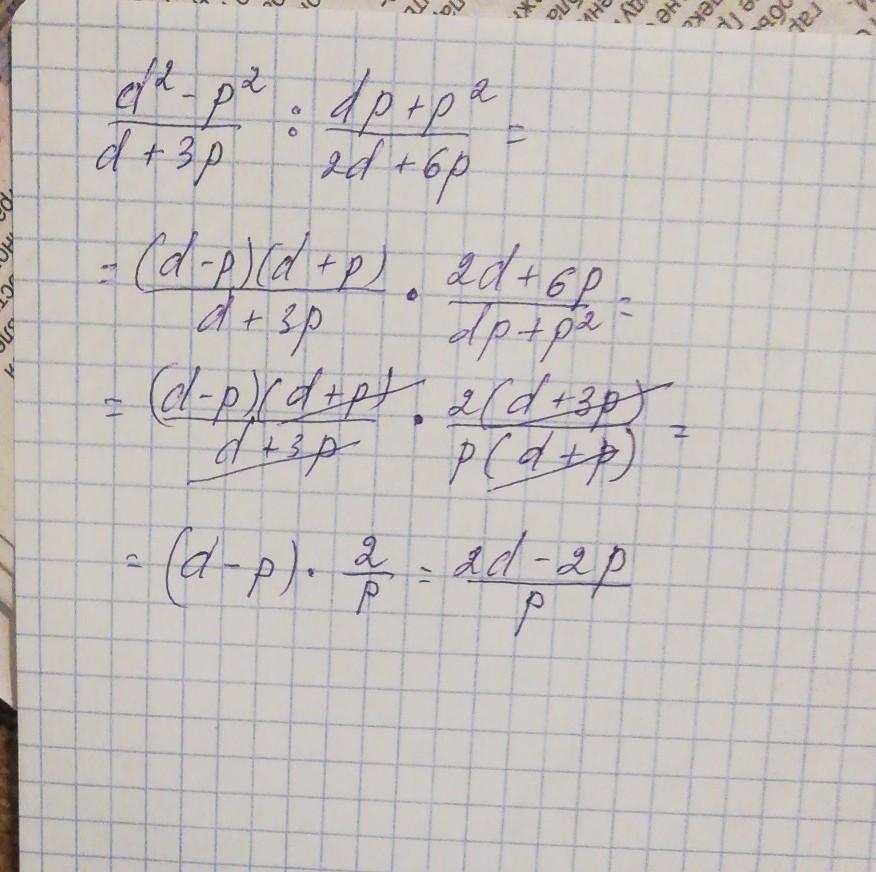 (d² - p²)/(d + 3p) : (dp + p²)/(2d + 6p) =
= ((d - p)(d + p))/(d + 3p) · (2d + 6p)/(dp + p²) =
= ((d - p)(d + p))/(d + 3p) · (2(d + 3p))/(p(d + p)) =
= (d - p) · 2/p = (2d - 2p)/p